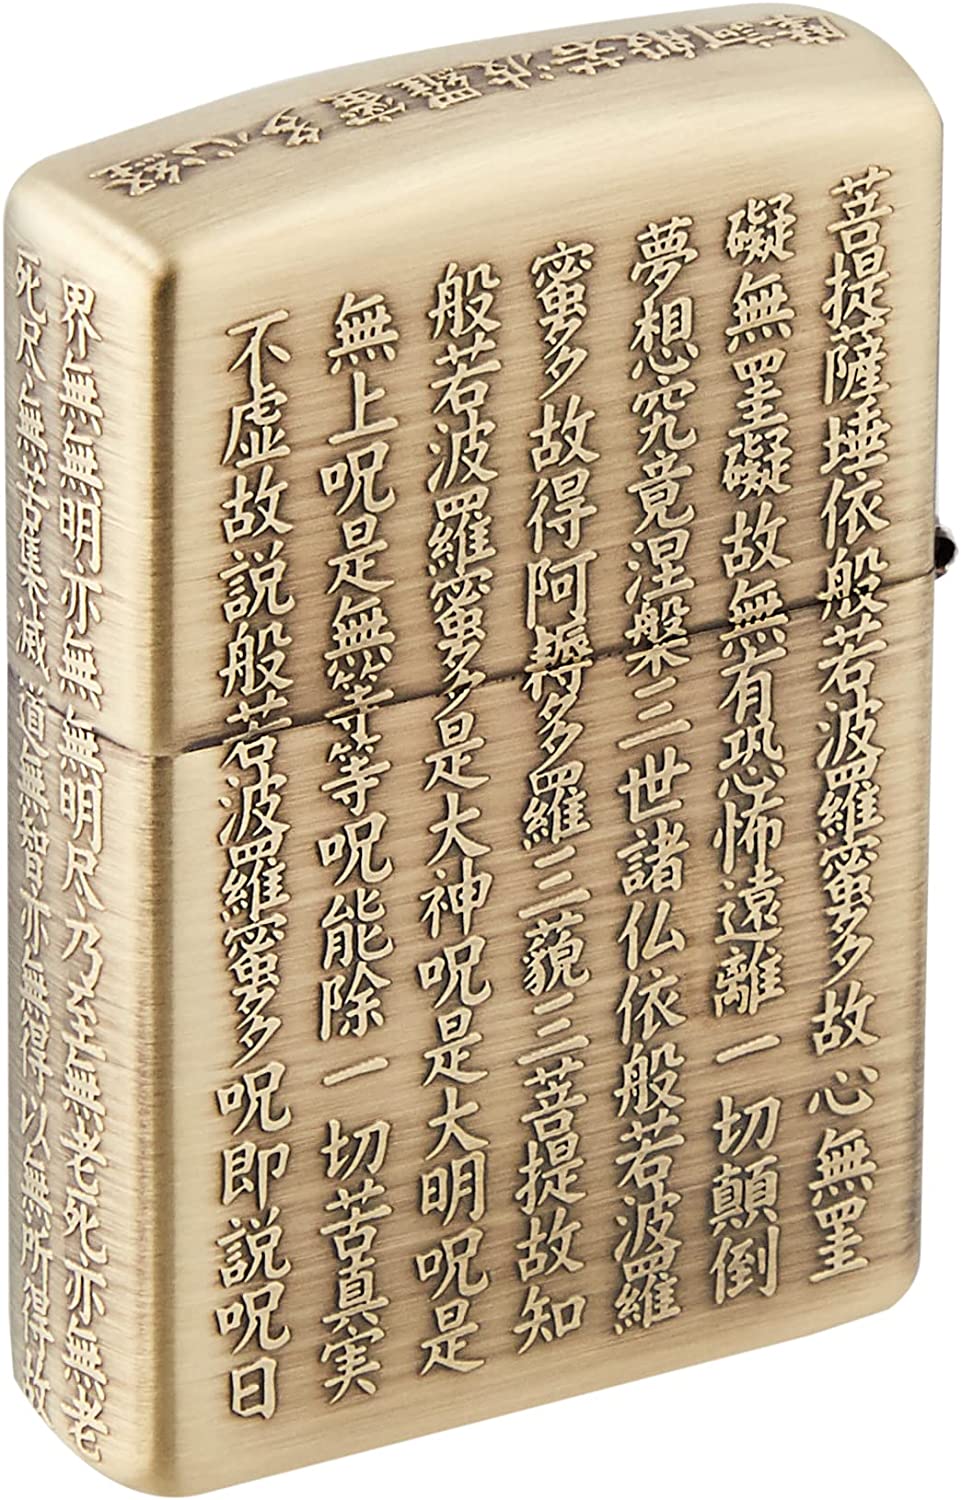 摩訶般若波羅蜜多心經
界無無明亦無無明尽乃至無老死亦無老
死尽無苦集滅道無智亦無得以無所得故
菩提薩埵依般若波羅蜜多故心無罣
礙無罣礙故無有恐怖遠離一切顛倒
夢想究竟涅槃三世諸仏依般若波羅
蜜多故得阿耨多羅三藐三菩提故知
般若波羅蜜多是大神呪是大明呪是
無上呪是無等等呪能除一切苦真実
不虚故説般若波羅蜜多呪即説呪曰